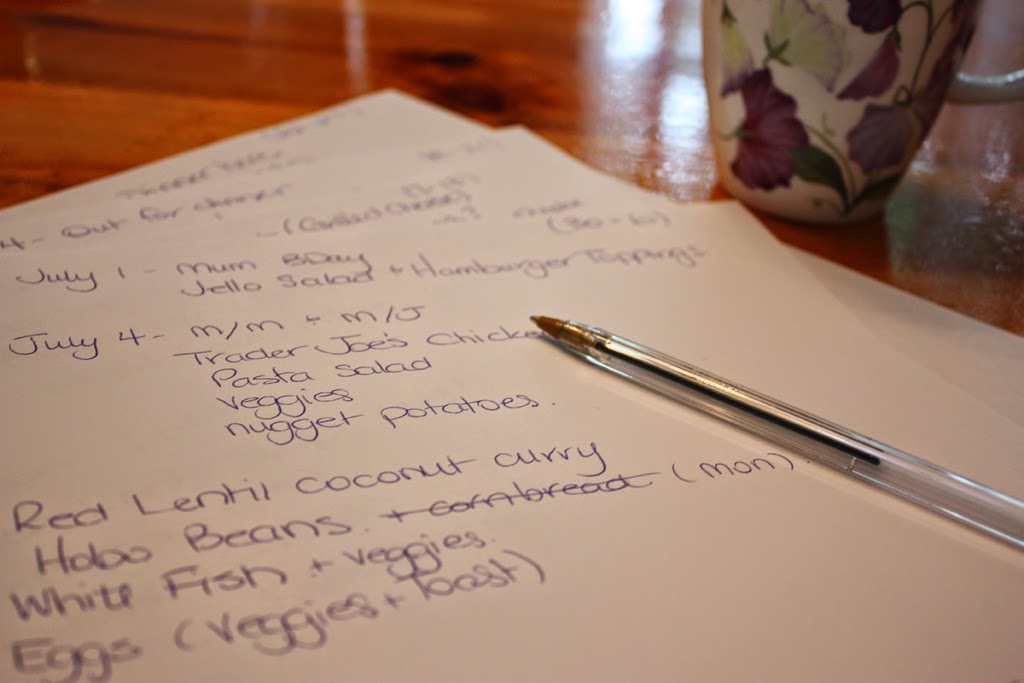 4 - Out for dinner
(Grilled Cheese)
July 1 - Mum BDay
Jello Salad + Hamburger Toppings
July 4 - m/m + m/J
Trader Joe's Chicken
Pasta Salad
veggies
nugget potatoes.
Red Lentil coconut curry
Hobo Beans. + cornbread (mon)
White Fish + veggies.
Eggs (veggies + Toast)